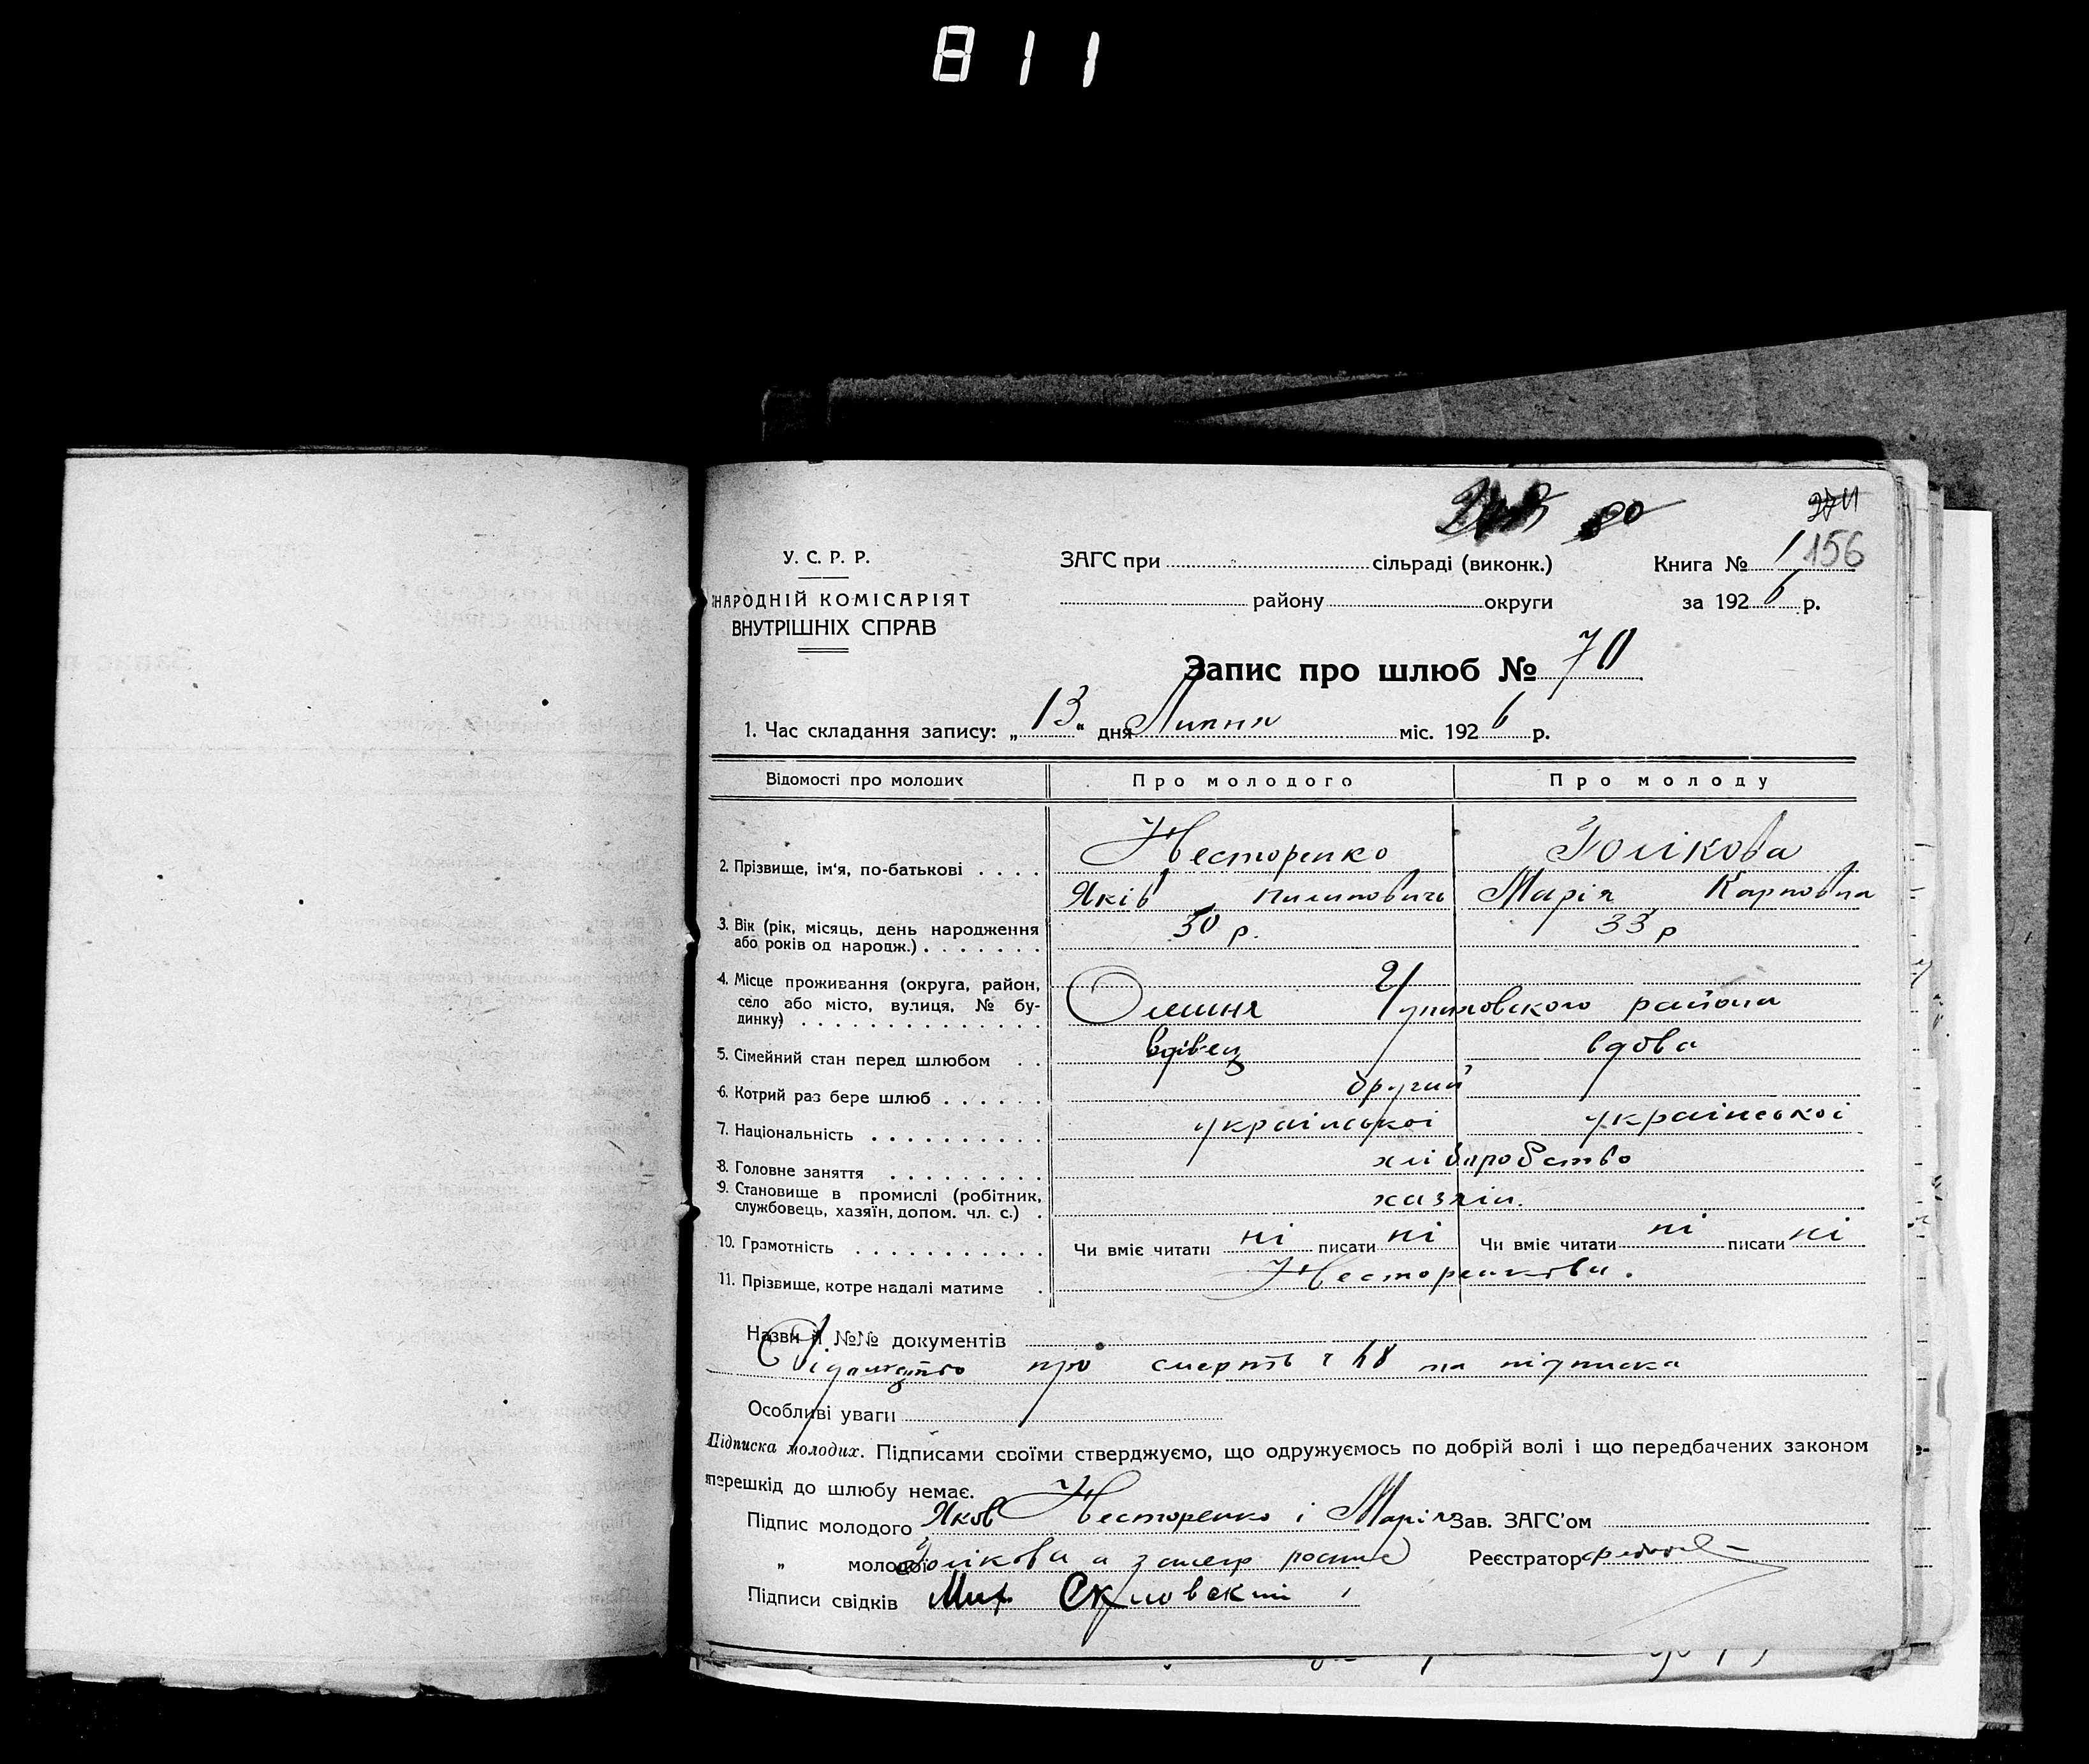 811
80
156
У. С. Р. Р.
НАРОДНІЙ КОМІСАРІЯТ
ВНУТРІШНІХ СПРАВ
ЗАГС при сільраді (виконк.)
району округи
Книга № 1
за 1926 р.
Запис про шлюб № 70
1. Час складання запису: „13“ дня Липня міс. 1926 р.
Відомості про молодих Про молодого Про молоду
2. Прізвище, ім'я, по-батькові . . . . Несторенко Голікова
Яків Пилиповичь Марія Карповна
3. Вік (рік, місяць, день народження 30 р. 33 р
або років од народж.) . . . . . .
4. Місце проживання (округа, район,
село або місто, вулиця, № бу- района
динку) . . . . . . . . . . . . . .
5. Сімейний стан перед шлюбом . . вдівец вдова
6. Котрий раз бере шлюб . . . . . . другий
7. Національність . . . . . . . . . . української української
8. Головне заняття . . . . . . . . . хліборобство
9. Становище в промислі (робітник, хазяїн.
службовець, хазяїн, допом. чл. с.) .
10. Грамотність . . . . . . . . . . . Чи вміє читати ні писати ні Чи вміє читати ні писати ні
11. Прізвище, котре надалі матиме . Несторенкови.
Назви й №№ документів
про смерть 68 та підписка
Особливі уваги
Підписка молодих. Підписами своїми стверджуємо, що одружуємось по добрій волі і що передбачених законом
перешкід до шлюбу немає.
Підпис молодого Яков Несторенко і Марія Зав. ЗАГС'ом
„ молодої Голікова а Реєстратор
Підписи свідків Мих